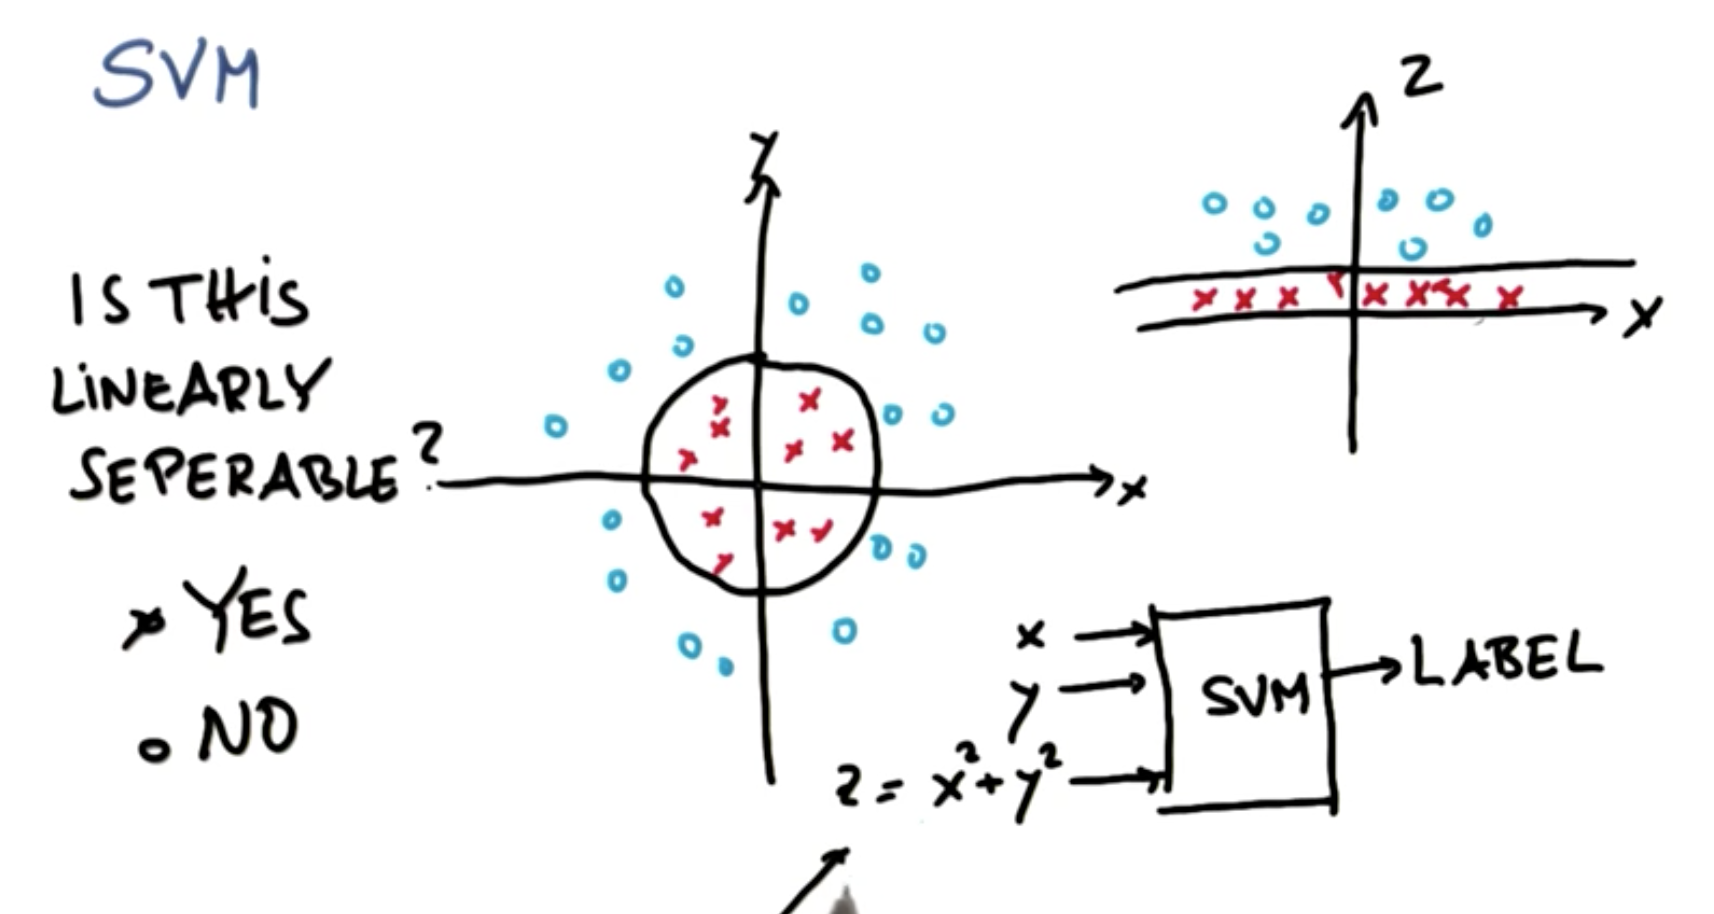 SVM
IS THIS
LINEARLY
SEPERABLE?
x YES
o NO
y
x
z
x
x
y
z = x² + y²
SVM
LABEL